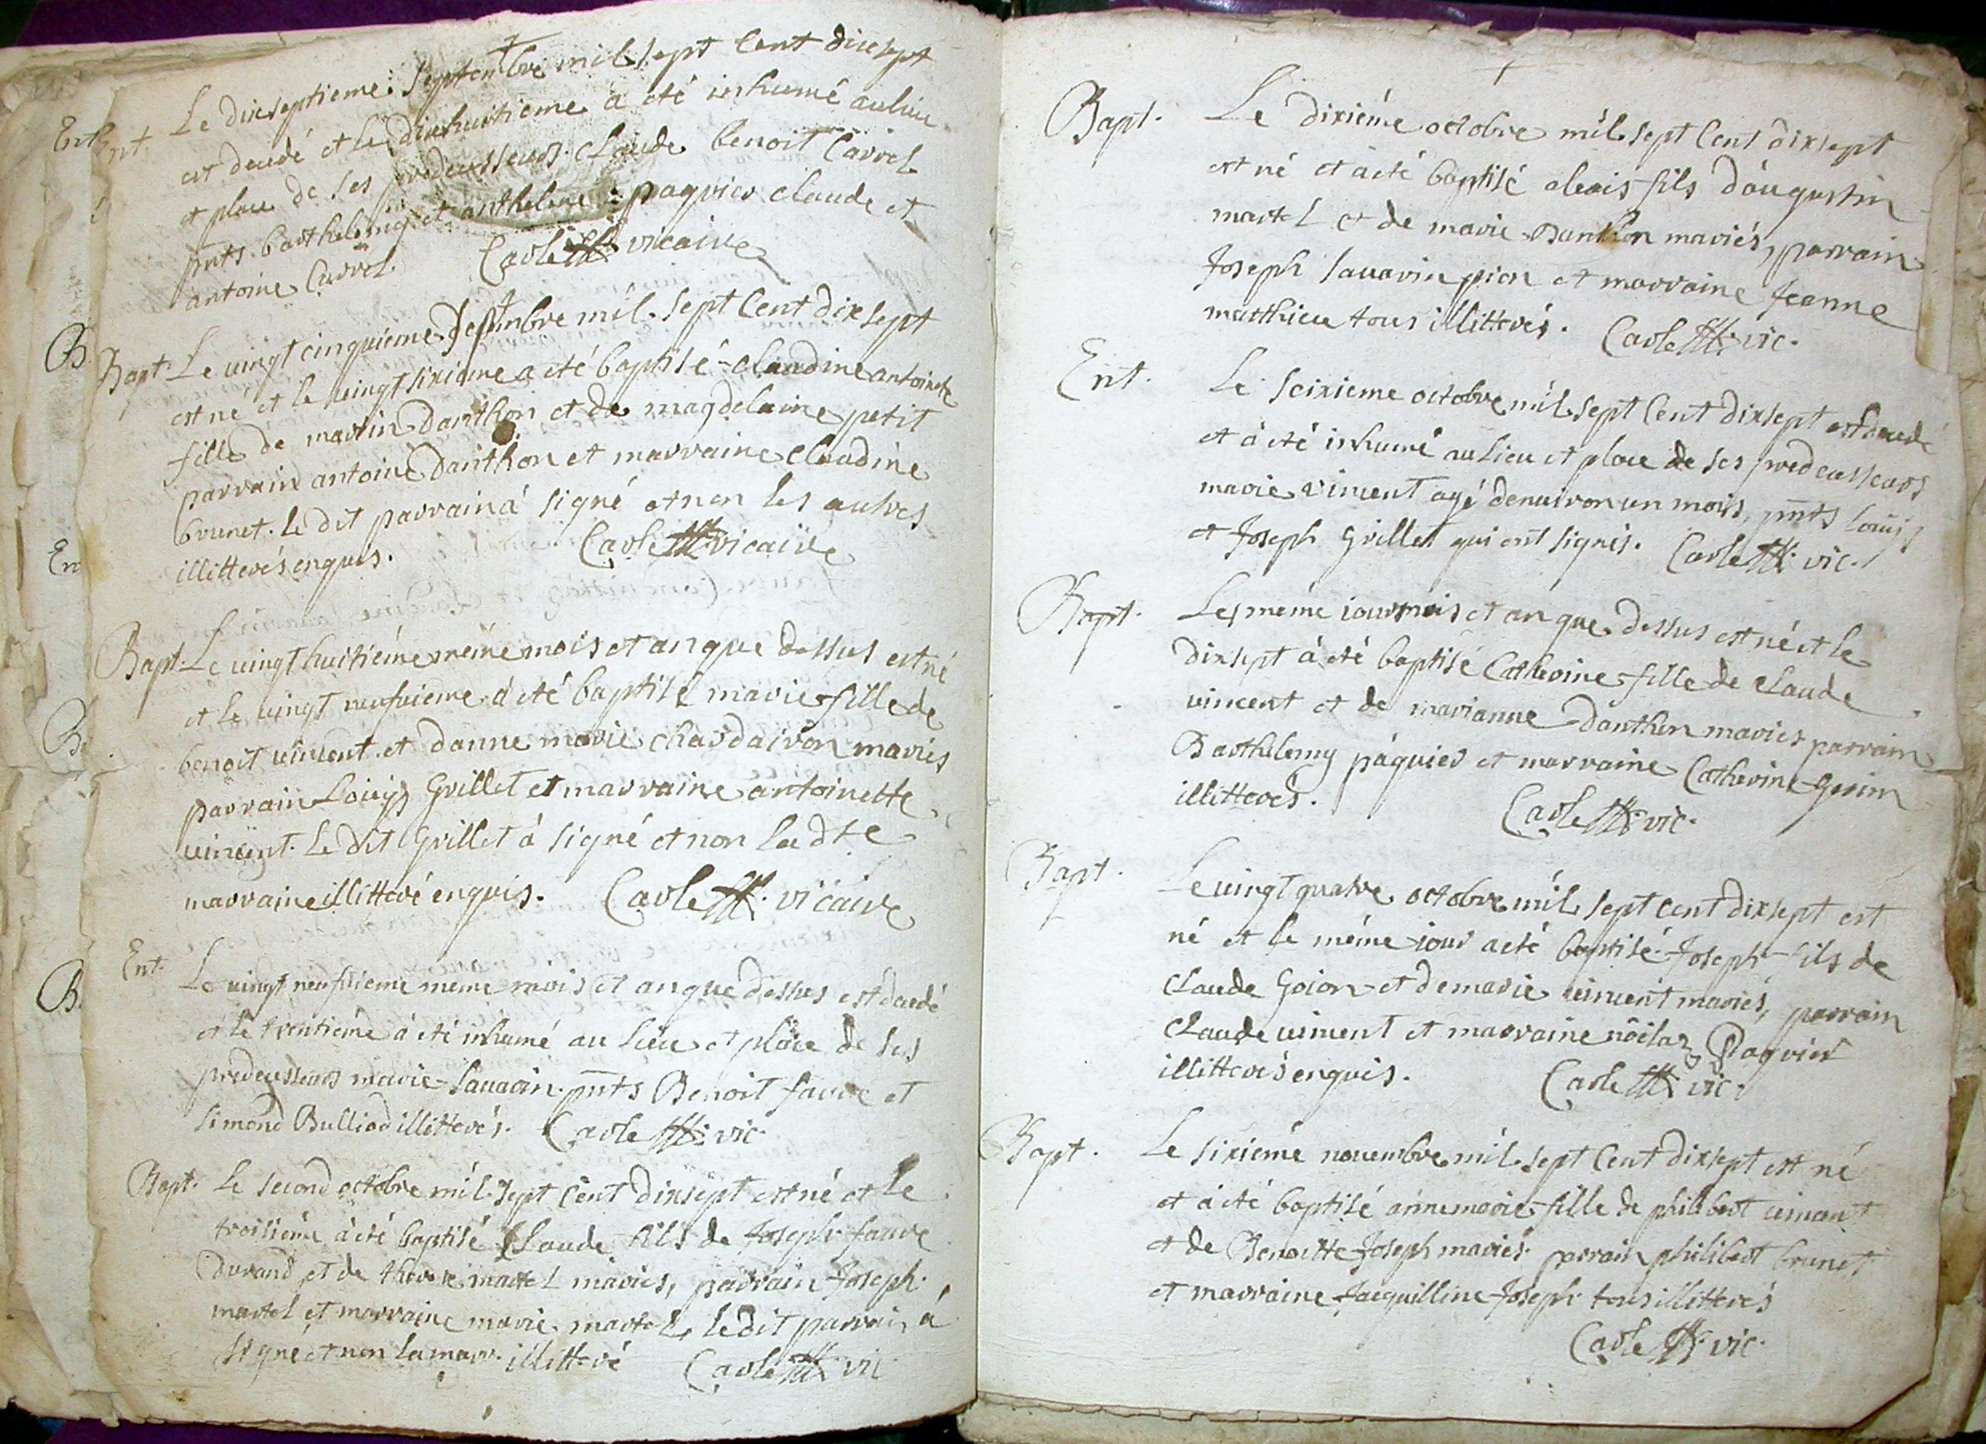 Ent. Le dixseptieme: septembre mil sept Cent dixsept
est decedé et le dixhuitieme a été inhumé au lieu
et place de ses predecesseurs Claude benoit Carrel
pnts. barthelemy et anthelme : paquier claude et
antoine Carrel. Carle vicaire
Bapt. Le vingt cinquieme Septembre mil sept Cent dixsept
est né et le vingt sixieme a été baptisé claudine antoinete
fille de martin danthon et de magdelaine petit
parrain antoine Danthon et marraine claudine
brunet. le dit parrain a signé et non les autres
illitterés enquis. Carle vicaire
Bapt. Le vingt huitiéme méme mois et an que dessus est né
et le vingt neufvieme a été baptisé marie fille de
benoit vincent et danne marie chardairon mariés
parrain Loüys Grillet et marraine antoinette
vincent. le dit Grillet à signé et non la dte
marraine illitteré enquis. Carle vicaire
Ent. Le vingt neufvieme méme mois et an que dessus est decedé
et le trentiéme à été inhumé au lieu et place de ses
predecesseurs marie Savarin. pnts Benoit favre et
simond Bulliod illitterés. Carle vic.
Bapt. Le second octobre mil sept Cent dixsept est né et le
troisiéme à été baptisé Claude fils de Joseph favre
Durand et de therese martel mariés, parrain Joseph
martel et marraine marie martel, le dit parrain à
signé et non la marr. illitteré Carle vic
Bapt. Le dixiéme octobre mil sept Cent dixsept
est né et à été baptisé alexis fils d'augustin
martel et de marie Danthon mariés, parrain
Joseph Savarin pion et marraine Jeanne
matthieu tous illitterés. Carle vic.
Ent. Le seixieme octobre mil sept Cent dixsept est decedé
et à été inhumé au lieu et place de ses predecesseurs
marie vincent agé denuiron un mois, pnts Loüys
et Joseph Grillet qui ont signés. Carle vic.
Bapt. Les meme iour mois et an que dessus est né et le
dixsept à été baptisé Catherine fille de Claude
vincent et de marianne Danthon mariés parrain
Barthelemy páquier et marraine Catherine
illitterés. Carle vic.
Bapt. Le vingt quatre octobre mil sept cent dixsept est
né et le méme iour a été baptisé Joseph fils de
claude Goion et de marie vincent mariés, parrain
claude vincent et marraine Paquier
illitterés enquis. Carle vic.
Bapt. Le sixiéme novembre mil sept Cent dixsept est né
et à été baptisé annemarie fille de philibert vincent
et de Benoitte Joseph mariés. parain philibert brunet
et marraine Jacquilline Joseph tous illitterés
Carle vic.